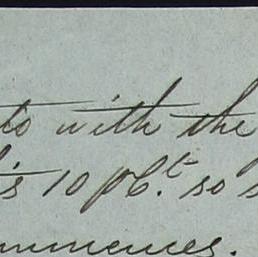 to with the
is 10 p Ct. so
mmences.